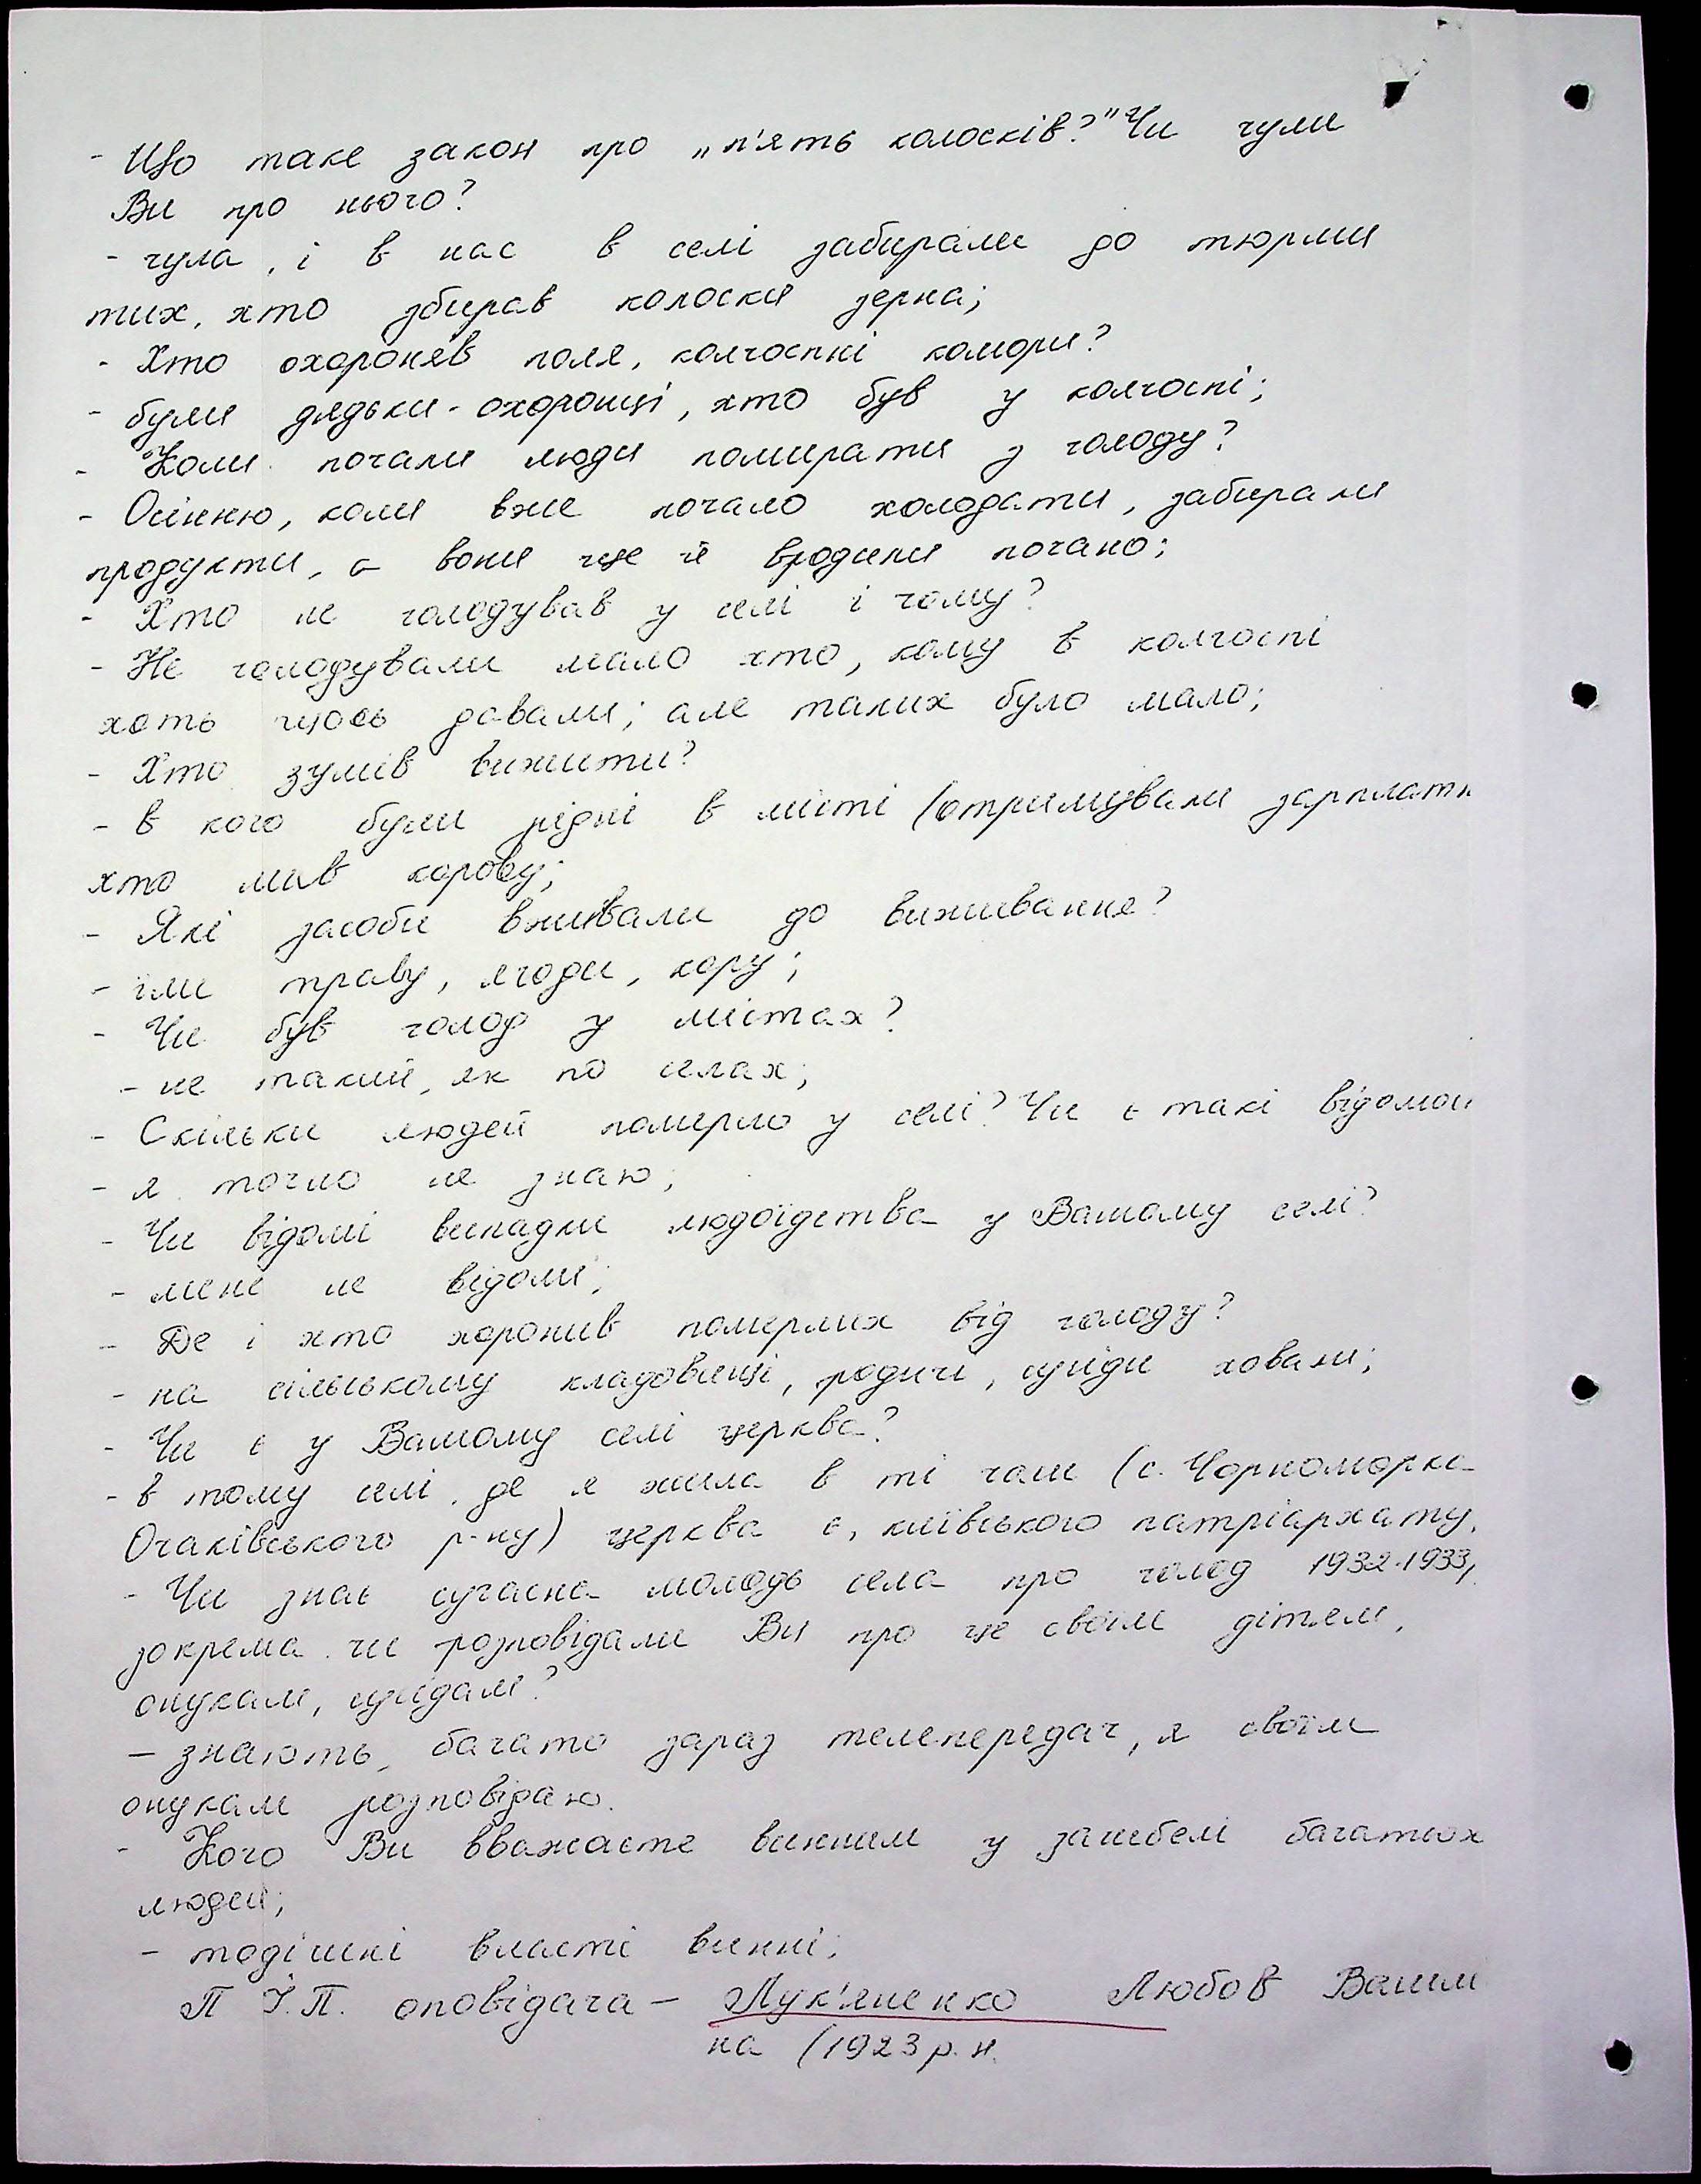 - Що таке закон про „п'ять колосків?" Чи чули
Ви про нього?
- чула, і в нас в селі забирали до тюрми
тих, хто збирав колоски зерна;
- Хто охороняв поля, колгоспні комори?
- були дядьки-охоронці, хто був у колгоспі;
- Коли почали люди помирати з голоду?
- Осінню, коли вже почало холодати, забирали
продукти, а вони ще й вродили погано;
- Хто не голодував у селі і чому?
- Не голодували мало хто, кому в колгоспі
хоть щось давали; але таких було мало;
- Хто зумів вижити?
- в кого були рідні в місті (отримували зарплати
хто мав корову;
- Які засоби вживали до виживання?
- їли траву, ягоди, кору;
- Чи був голод у містах?
- не такий, як по селах;
- Скільки людей померло у селі? Чи є такі відомос
- я точно не знаю;
- Чи відомі випадки людоїдства у Вашому селі?
- мені не відомі;
- Де і хто хоронив померлих від голоду?
- на сільському кладовищі, родичі, сусіди ховали;
- Чи є у Вашому селі церква?
- в тому селі, де я жила в ті часи (с. Чорноморка
Очаківського р-ну) церква є, київського патріархату.
- Чи знає сучасна молодь села про голод 1932-1933,
зокрема чи розповідали Ви про це своїм дітям,
онукам, сусідам?
- знають, багато зараз телепередач, я своїм
онукам розповідаю.
- Кого Ви вважаєте винним у загибелі багатьох
людей;
- тодішні власті винні;
П.І.П. оповідача - Лук'яненко Любов Васим
на (1923 р.н.